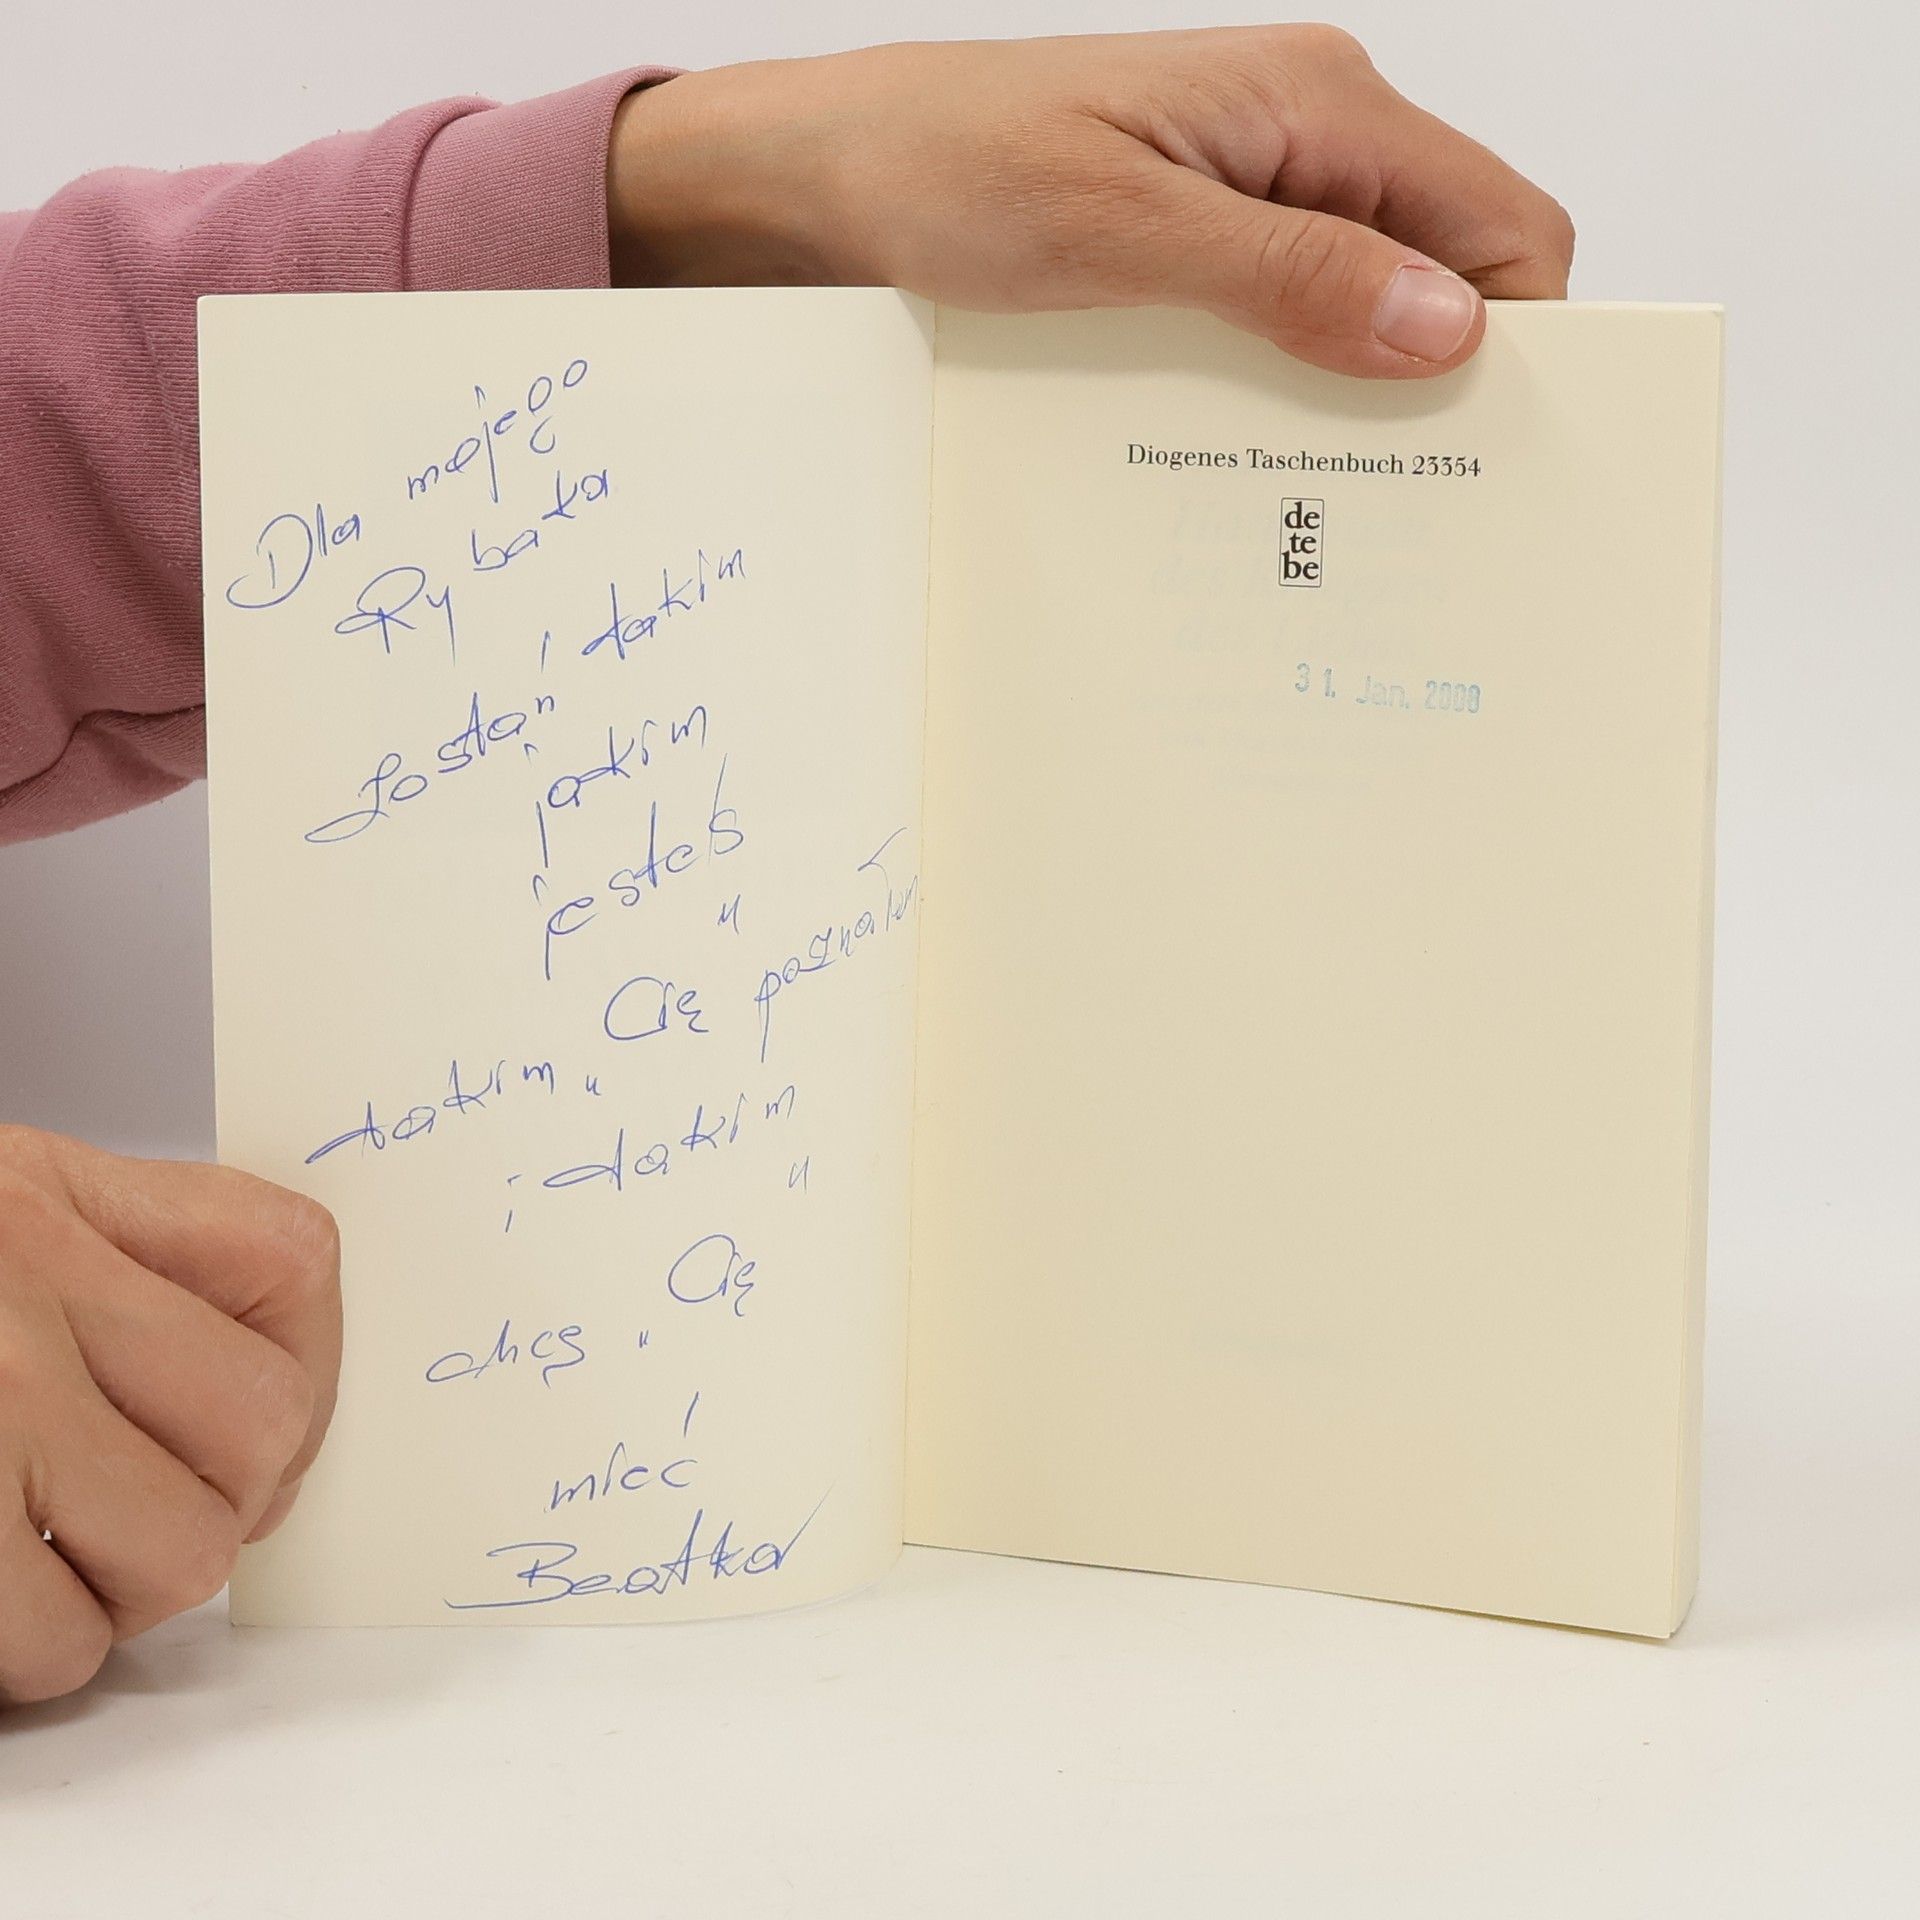 Dla mojego
Rybaka
Zostań takim
jakim
jesteś
"
Cię poznałam
takim "
i takim
"
Cię
chcę "
mieć
Beatka
Diogenes Taschenbuch 23354
de
te
be
31. Jan. 2008